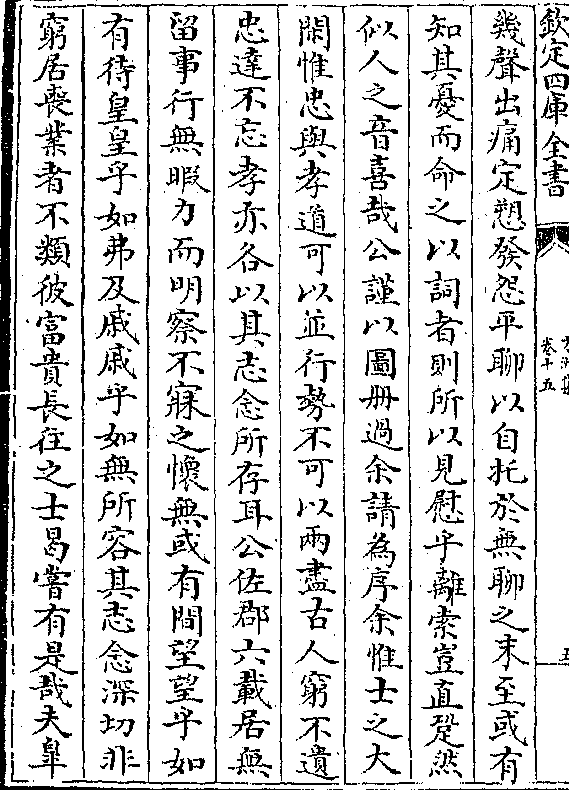 欽定四庫全書
卷十五
幾聲出痛定愬發怨平聊以自托於無聊之末至或有
知其憂而命之以詞者則所以見慰乎離索豈直跫然
似人之音喜哉公謹以圖册過余請為序余惟士之大
閑惟忠與孝道可以並行勢不可以兩盡古人窮不遺
忠達不忘孝亦各以其志念所存耳公佐郡六載居無
留事行無暇力而明察不寐之懷無或有間望望乎如
有待皇皇乎如弗及戚戚乎如無所容其志念深切非
窮居喪業者不類彼富貴長往之士曷嘗有是哉夫阜